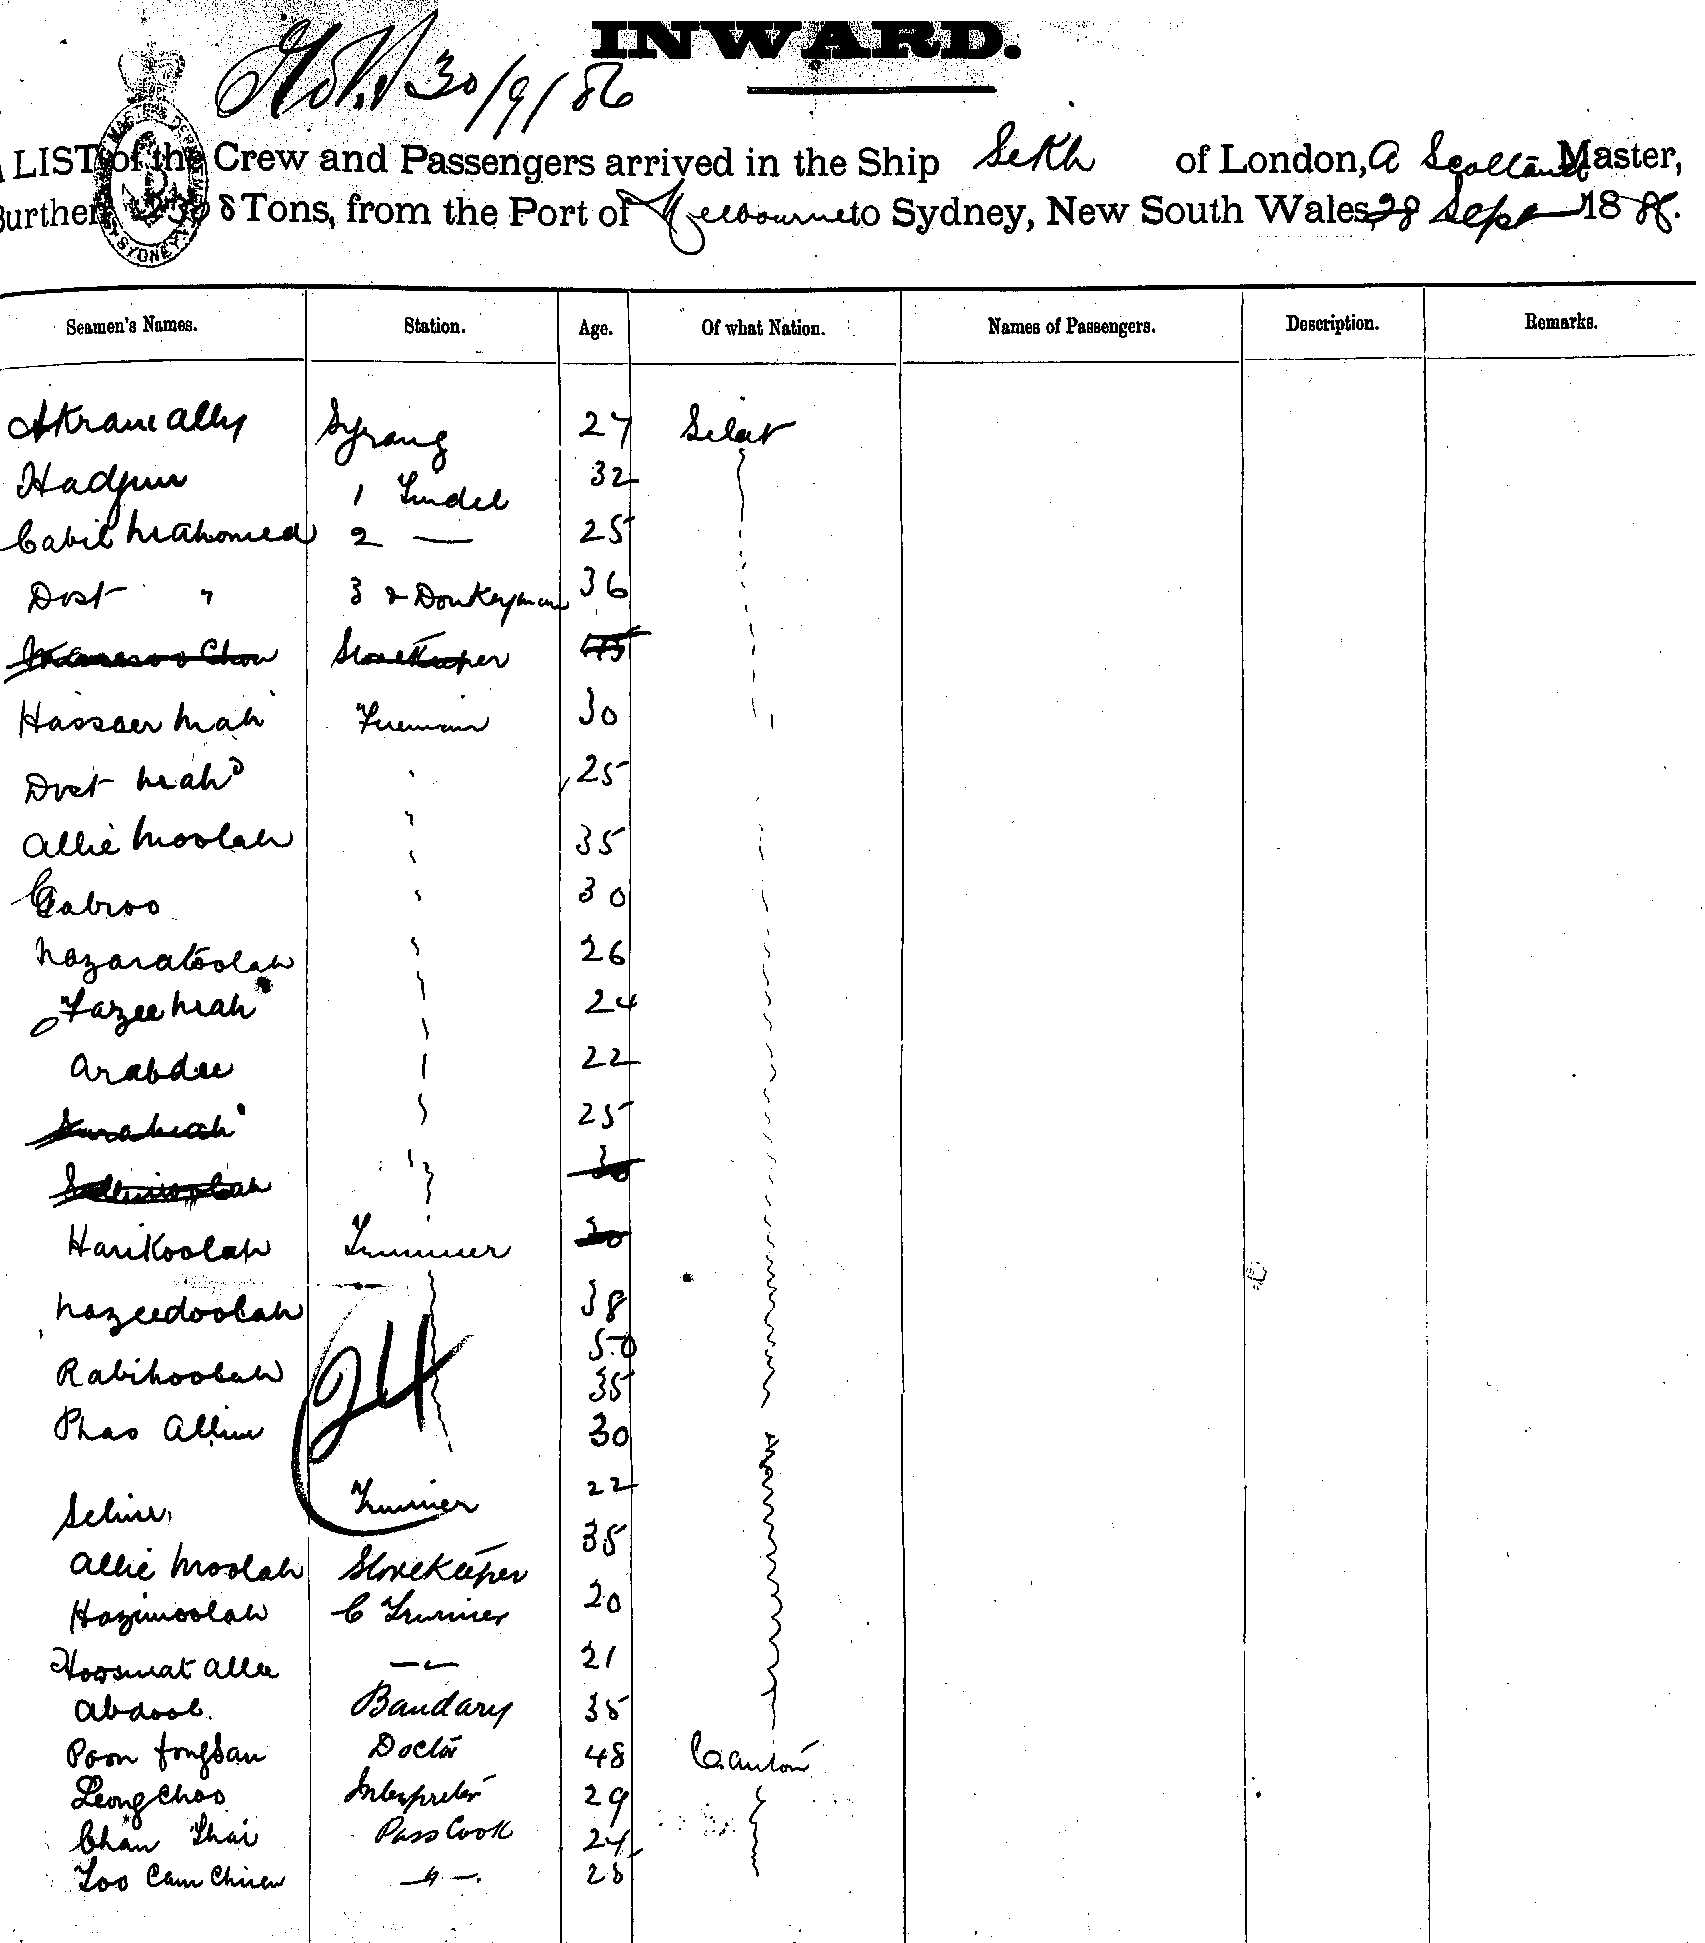 INWARD.
30/9/86
LIST of the Crew and Passengers arrived in the Ship Sikh of London, A Scotland Master,
Burthen Tons, from the Port of Melbourne to Sydney, New South Wales, 28 Sept 1886.
Seamen's Names. Station. Age. Of what Nation. Names of Passengers. Description. Remarks.
Akram Ally Syrang 27 Silat
Hadjee 1 Tindel 32
Cabil Mahomed 2 — 25
Dost " 3 & Donkeyman 36
Storekeeper 45
Hassan Miah Fireman 30
Dost Mahd 25
Allie Moolah 35
Gabroo 30
Nazaratoolah 26
Fazee Miah 24
Arabdee 22
25
30
Harikoolah Trimmer 30
Nazeedoolah 38
50
Rabihoolah 35
Phas Allim 30
24
Selim Trimmer 22
Allie Moolah Storekeeper 35
Hazimoolah C Trimmer 20
Hoosmat Allee — 21
Abdool. Bandary 35
Poon Fong San Doctor 48 Canton
Leong Choo Interpreter 29
Chan Thai Pass Cook 24
Loo Cam Chuen —"—. 28